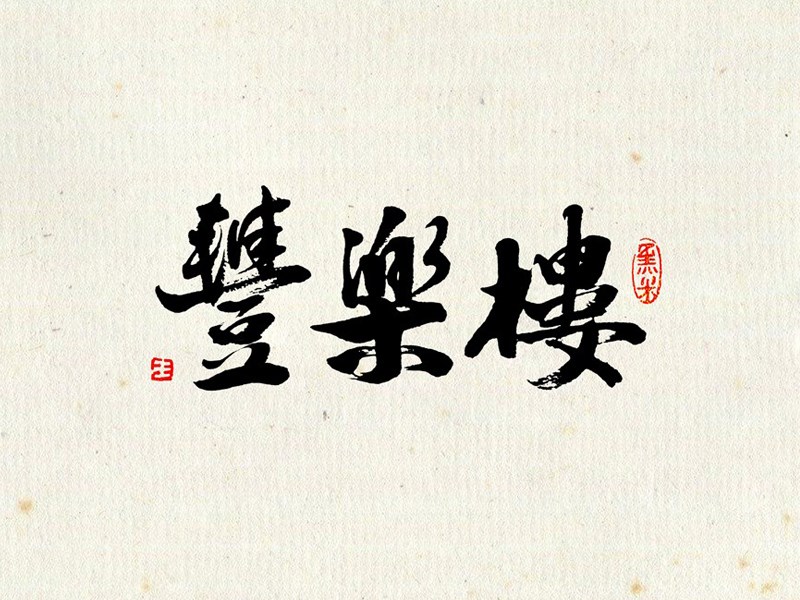 豐樂樓